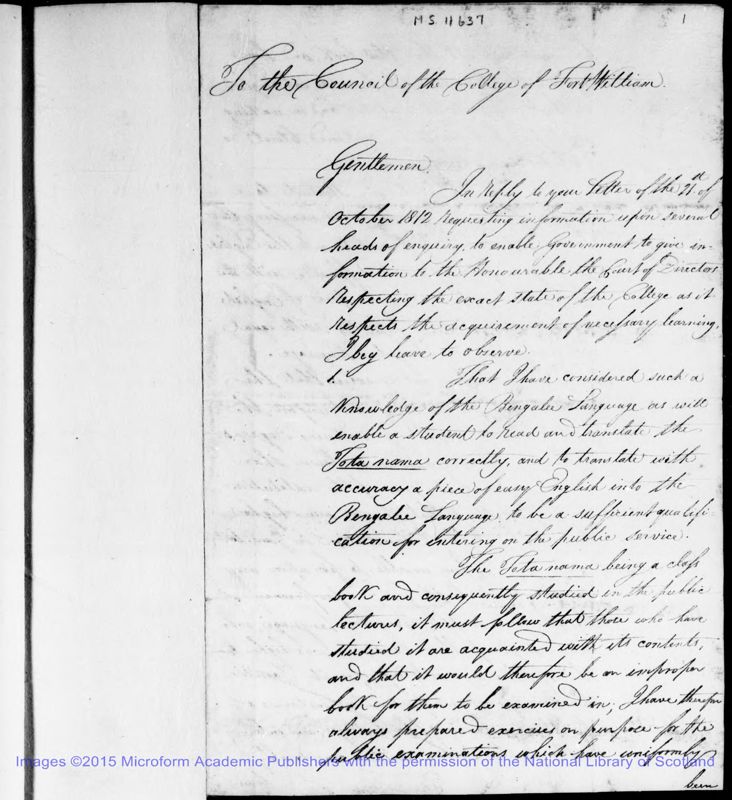 MS 11637
1
To the Council of the College of Fort William.
Gentlemen.
In reply to your Letter of the 21st of
October 1812 requesting information upon several
heads of enquiry, to enable Government to give in-
formation to the Honourable the Court of Directors
respecting the exact state of the College as it
respects the acquirement of necessary learning,
I beg leave to observe.
1. That I have considered such a
Knowledge of the Bengalee Language as will
enable a student to read and translate the
Tota nama correctly, and to translate with
accuracy a piece of easy English into the
Bengalee Language, to be a sufficient qualifi-
cation for entering on the public service.
The Tota nama being a class
book and consequently studied in the public
lectures, it must follow that those who have
studied it are acquainted with its contents,
and that it would therefore be an improper
book for them to be examined in; I have therefore
always prepared exercises on purpose for the
public examinations which have uniformly
been
Images ©2015 Microform Academic Publishers with the permission of the National Library of Scotland